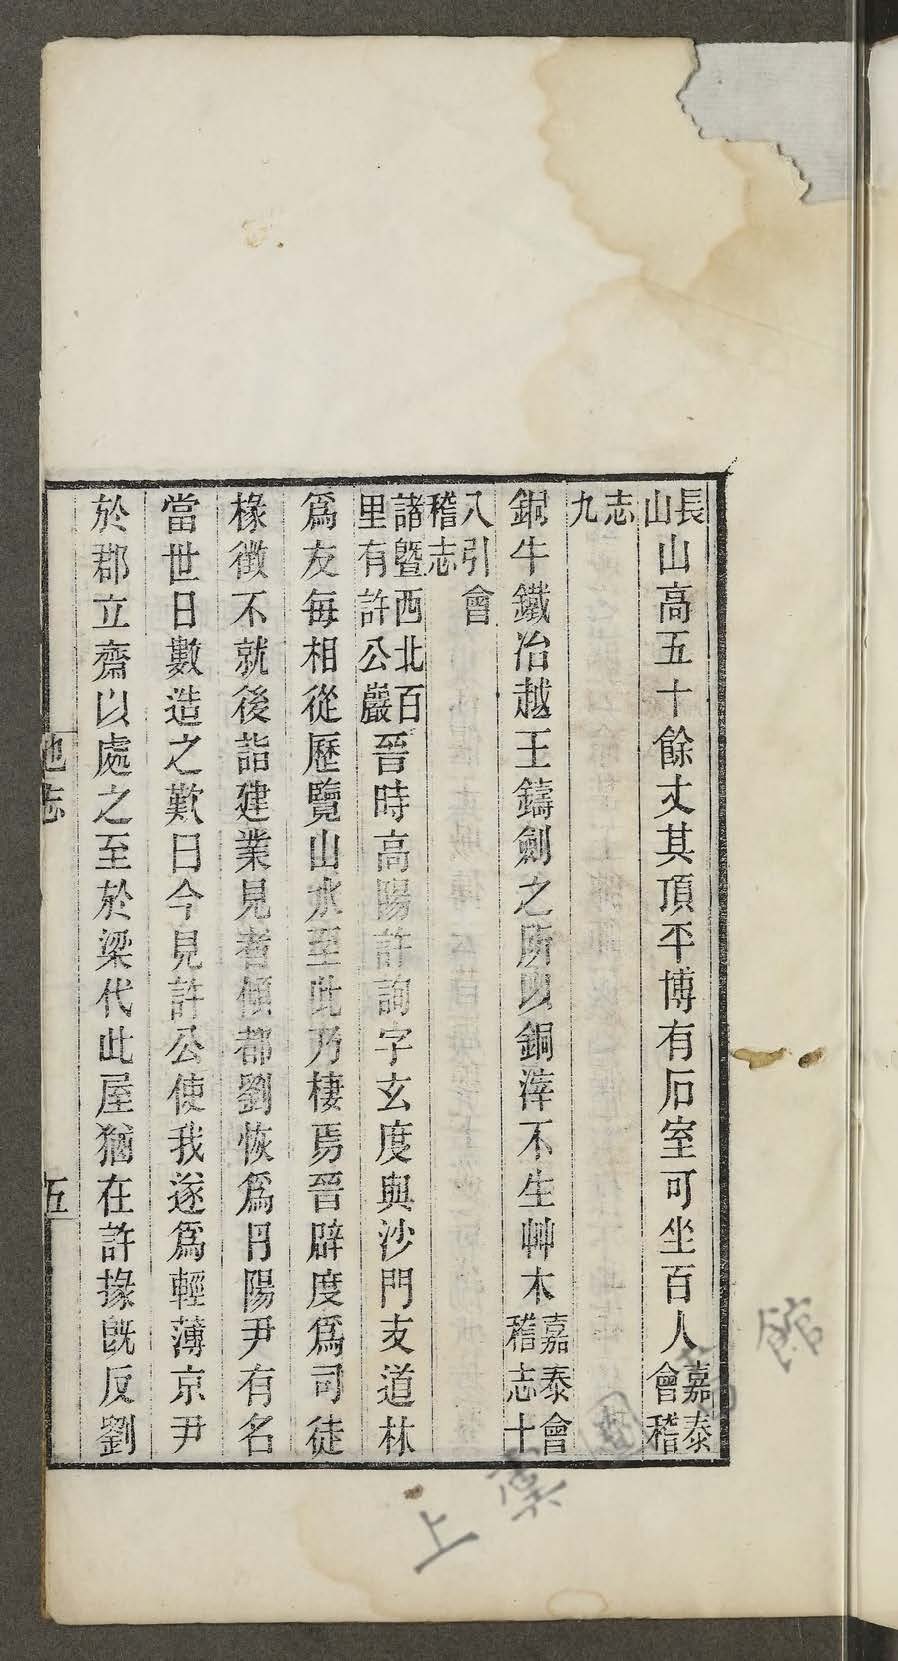 長山山高五十餘丈其頂平博有石室可坐百人嘉泰會稽
志九
銅牛鐵冶越王鑄劍之所以銅滓不生艸木嘉泰會稽志十
八引會稽志
諸暨西北百里有許公巖晉時高陽許詢字玄度與沙門支道林
爲友每相從歷覽山水至此乃棲焉晉辟度爲司徒
椽徵不就後詣建業見者傾都劉恢爲丹陽尹有名
當世日數造之歎曰今見許公使我遂爲輕薄京尹
於郡立齋以處之至於梁代此屋猶在許掾旣反劉
地志
五
上虞圖書館